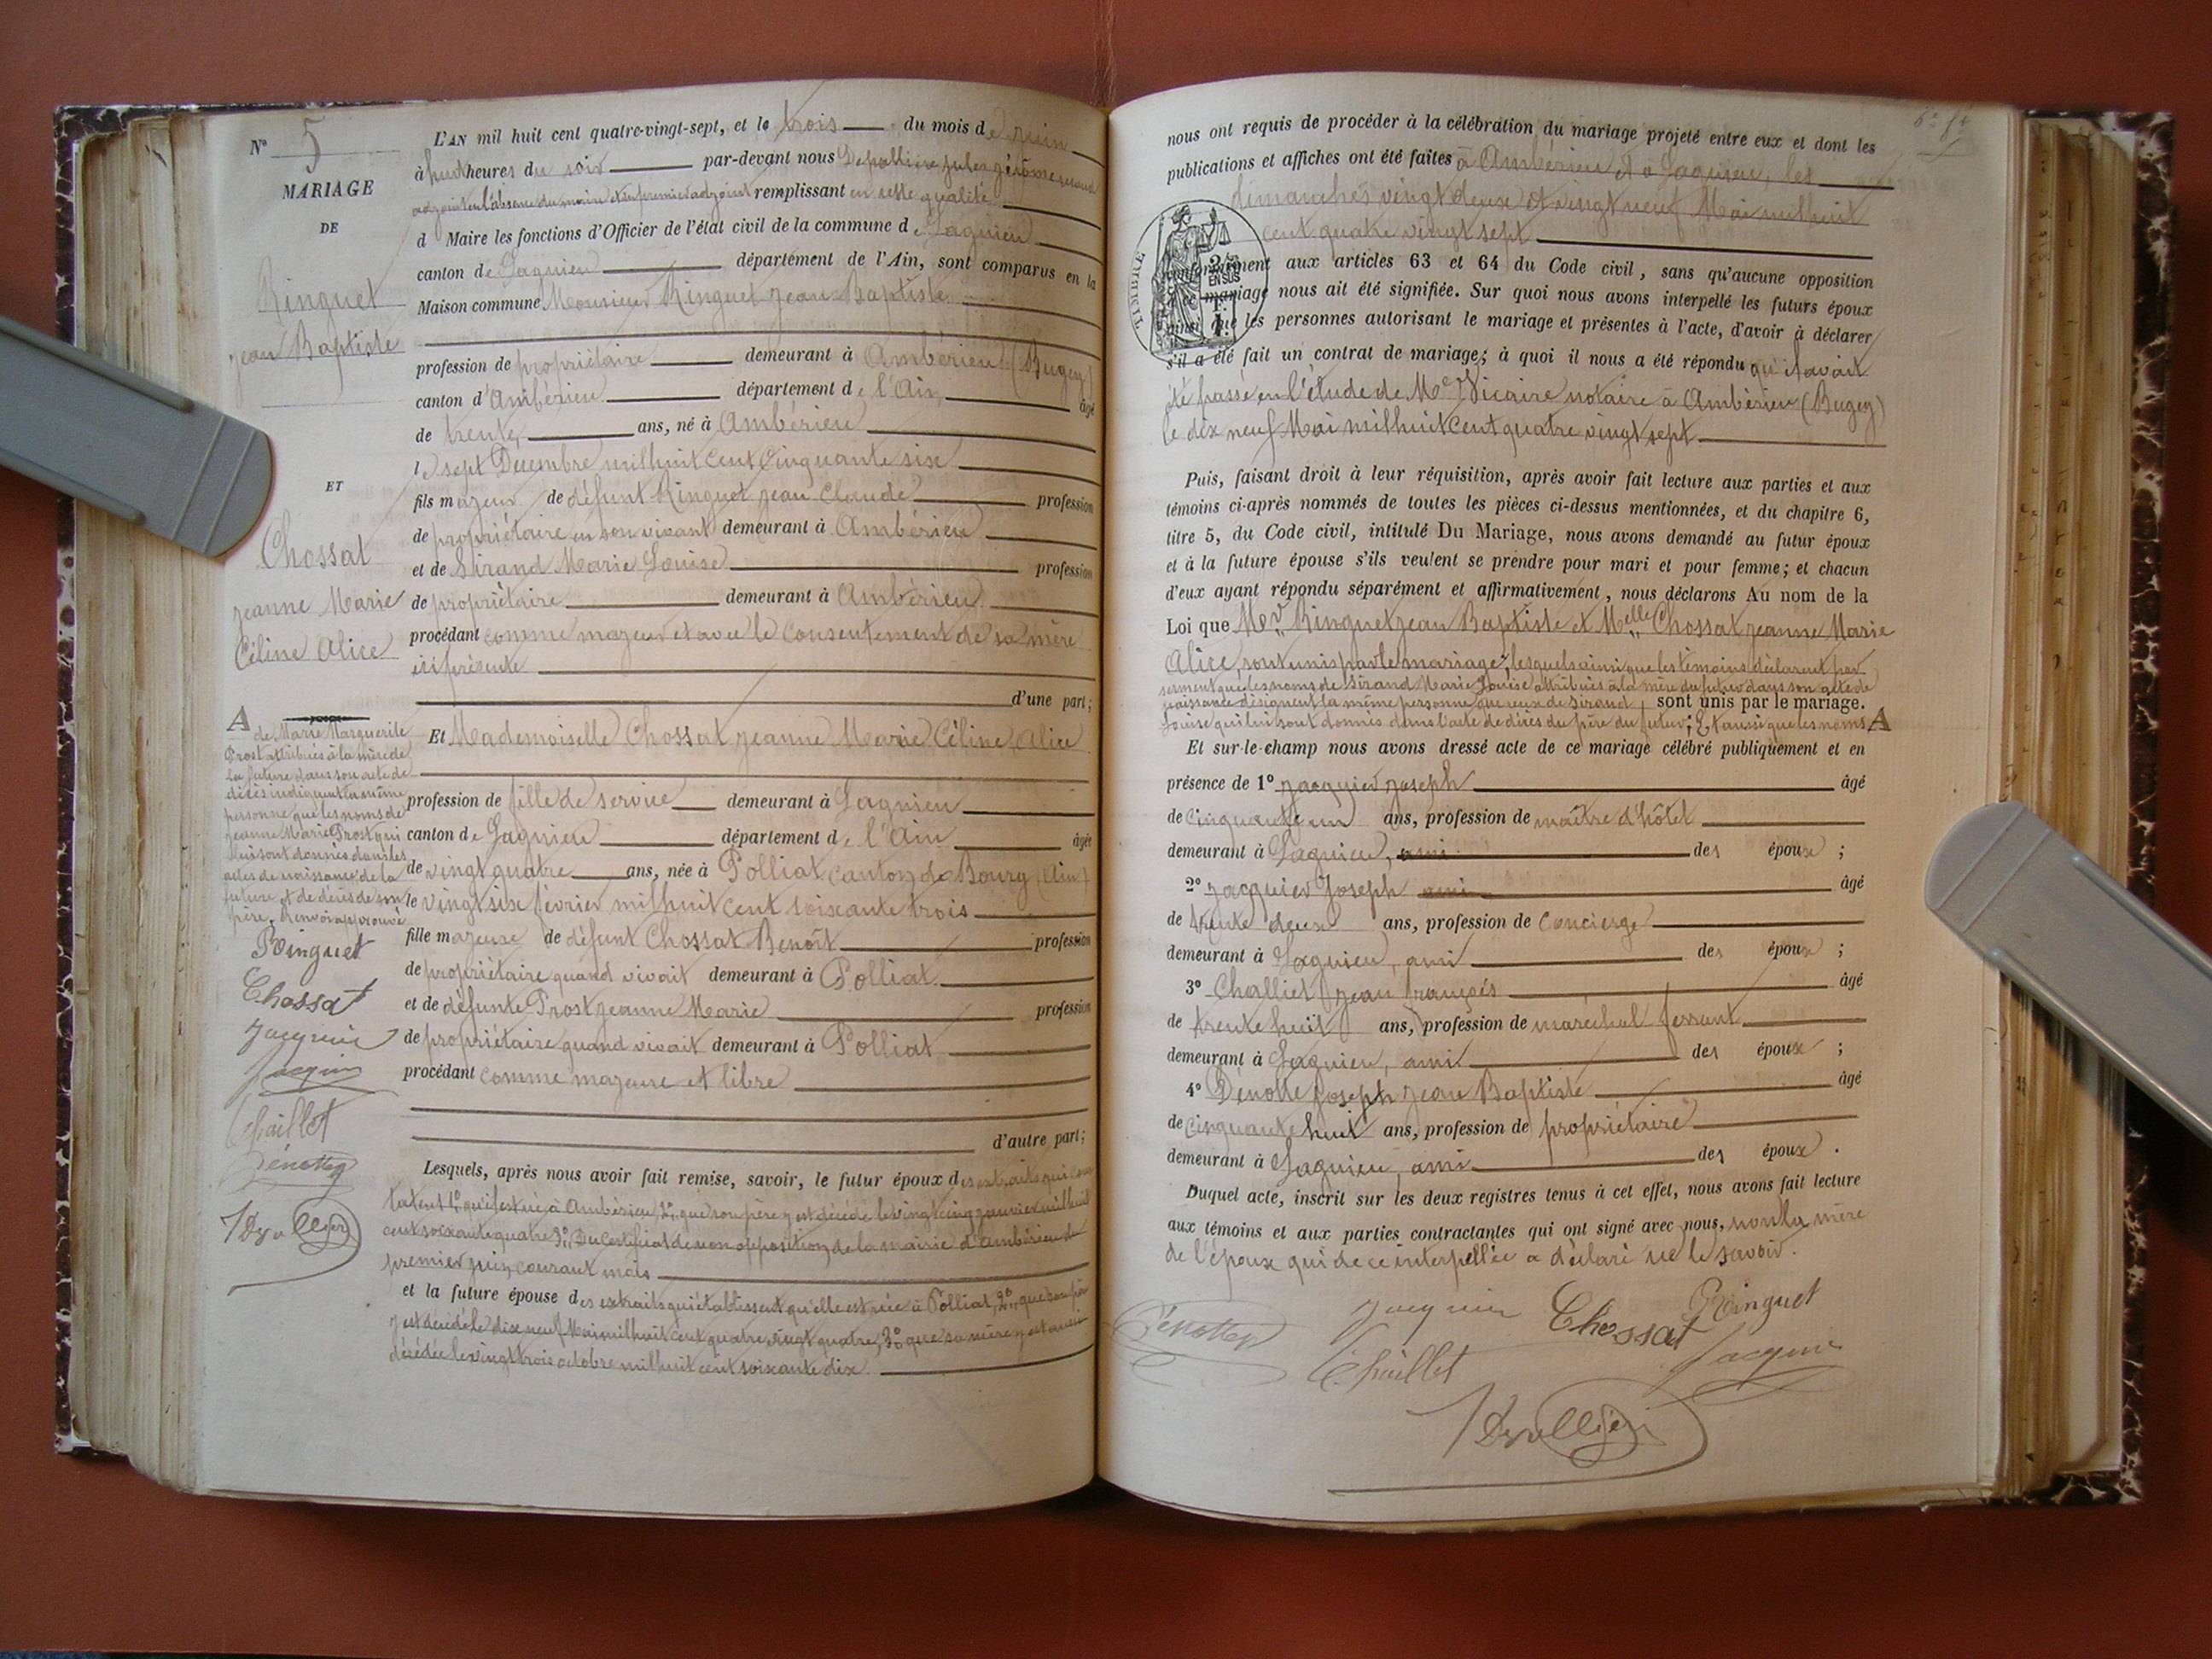 N° 5
MARIAGE
DE
Ringuet
Jean Baptiste
ET
Chossat
Jeanne Marie
Céline Alice
L'AN mil huit cent quatre-vingt-sept, et le trois du mois de Juin
à huit heures du soir par-devant nous Depallière Jules Jérôme second
adjoint en l'absence du maire et du premier adjoint remplissant en cette qualité
d Maire les fonctions d'Officier de l'état civil de la commune de Lagnieu
canton de Lagnieu département de l'Ain, sont comparus en la
Maison commune Monsieur Ringuet Jean Baptiste
profession de propriétaire demeurant à Ambérieu (Bugey)
canton d'Ambérieu département de l'Ain âgé
de trente ans, né à Ambérieu
le sept Décembre mil huit cent cinquante six
fils majeur de défunt Ringuet Jean Claude profession
de propriétaire en son vivant demeurant à Ambérieu
et de Sirand Marie Louise profession
de propriétaire demeurant à Ambérieu
procédant comme majeur et avec le consentement de sa mère
ici présente
d'une part;
Et Mademoiselle Chossat Jeanne Marie Céline Alice
profession de fille de service demeurant à Lagnieu
canton de Lagnieu département de l'Ain âgée
de vingt quatre ans, née à Polliat canton de Bourg (Ain)
le vingt six février mil huit cent soixante trois
fille majeure de défunt Chossat Benoît profession
de propriétaire quand vivait demeurant à Polliat
et de défunte Prost Jeanne Marie profession
de propriétaire quand vivait demeurant à Polliat
procédant comme majeure et libre
d'autre part;
Lesquels, après nous avoir fait remise, savoir, le futur époux des extraits qui cons
tatent 1° qu'il est né à Ambérieu, 2° que son père y est décédé le vingt cinq janvier mil huit
cent soixante quatre 3° Du Certificat de non opposition de la mairie d'Ambérieu du
premier juin courant mois
et la future épouse des extraits qui établissent qu'elle est née à Polliat, 2° que son père
y est décédé le dix neuf Mai mil huit cent quatre vingt quatre, 3° que sa mère y est aussi
décédée le vingt trois octobre mil huit cent soixante dix.
A de Marie Marguerite
Prost attribués à la mère de
la future dans son acte de
décès indiquent la même
personne que les noms de
Jeanne Marie Prost qui
lui sont donnés dans les
actes de naissance de la
future et de décès de son
père. Renvoi approuvé
Ringuet
Chossat
Jacquier
Jacquier
Chaillet
Dénotte
nous ont requis de procéder à la célébration du mariage projeté entre eux et dont les
publications et affiches ont été faites à Ambérieu et à Lagnieu, les
dimanches vingt deux et vingt neuf Mai mil huit
cent quatre vingt sept
TIMBRE
2/10
EN SUS
conformément aux articles 63 et 64 du Code civil, sans qu'aucune opposition
à ce mariage nous ait été signifiée. Sur quoi nous avons interpellé les futurs époux
ainsi que les personnes autorisant le mariage et présentes à l'acte, d'avoir à déclarer
s'il a été fait un contrat de mariage; à quoi il nous a été répondu qu'il avait
été passé en l'étude de Me Vicaire notaire à Ambérieu (Bugey)
le dix neuf Mai mil huit cent quatre vingt sept
Puis, faisant droit à leur réquisition, après avoir fait lecture aux parties et aux
témoins ci-après nommés de toutes les pièces ci-dessus mentionnées, et du chapitre 6,
titre 5, du Code civil, intitulé Du Mariage, nous avons demandé au futur époux
et à la future épouse s'ils veulent se prendre pour mari et pour femme; et chacun
d'eux ayant répondu séparément et affirmativement, nous déclarons Au nom de la
Loi que Mr Ringuet Jean Baptiste et Melle Chossat Jeanne Marie
Alice, sont unis par le mariage, lesquels ainsi que les témoins déclarent par
serment que les noms de Sirand Marie Louise attribués à la mère du futur dans son acte de
naissance désignent la même personne que ceux de Sirand sont unis par le mariage.
Louise qui lui sont donnés dans l'acte de décès du père du futur; Et aussi que les noms A
Et sur-le-champ nous avons dressé acte de ce mariage célébré publiquement et en
présence de 1° Jacquier Joseph âgé
de cinquante un ans, profession de maître d'hôtel
demeurant à Lagnieu, ami des époux ;
2° Jacquier Joseph ami âgé
de trente deux ans, profession de concierge
demeurant à Lagnieu, ami des époux ;
3° Challiet Jean François âgé
de trente huit ans, profession de maréchal ferrant
demeurant à Lagnieu, ami des époux ;
4° Dénotte Joseph Jean Baptiste âgé
de cinquante huit ans, profession de propriétaire
demeurant à Lagnieu, ami des époux .
Duquel acte, inscrit sur les deux registres tenus à cet effet, nous avons fait lecture
aux témoins et aux parties contractantes qui ont signé avec nous, non la mère
de l'époux qui de ce interpellée a déclaré ne le savoir.
Jacquier Chossat Ringuet
Dénotte Chaillet Jacquier